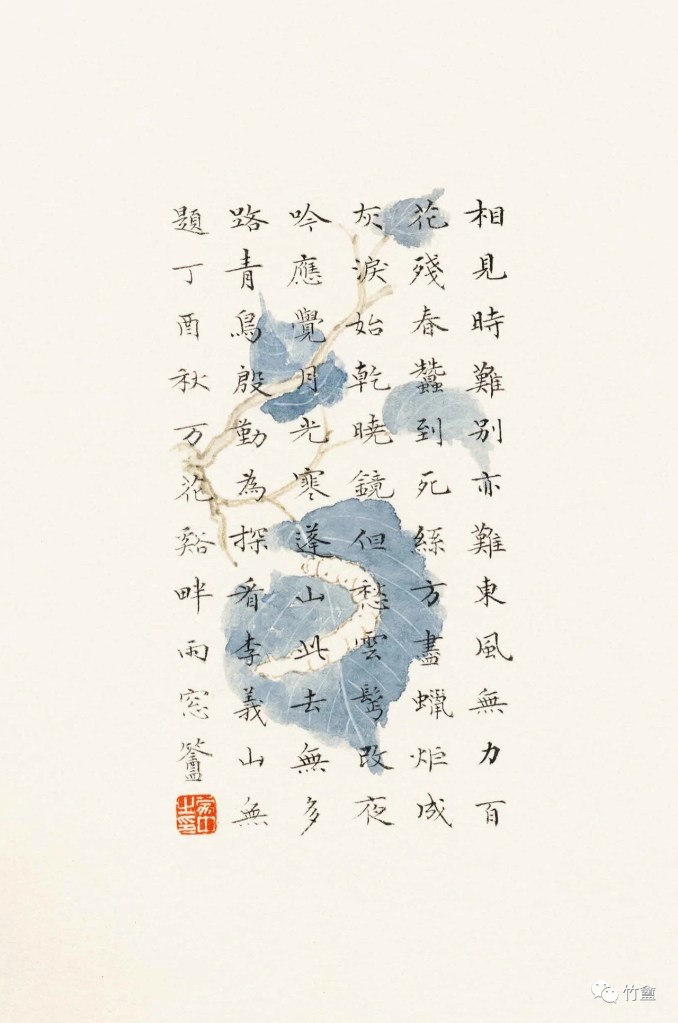 相見時難別亦難東風無力百
花殘春蠶到死絲方盡蠟炬成
灰淚始乾曉鏡但愁雲鬢改夜
吟應覺月光寒蓬山此去無多
路青鳥殷勤為探看李義山無
題丁酉秋万花谿畔雨窓簽
竹盦